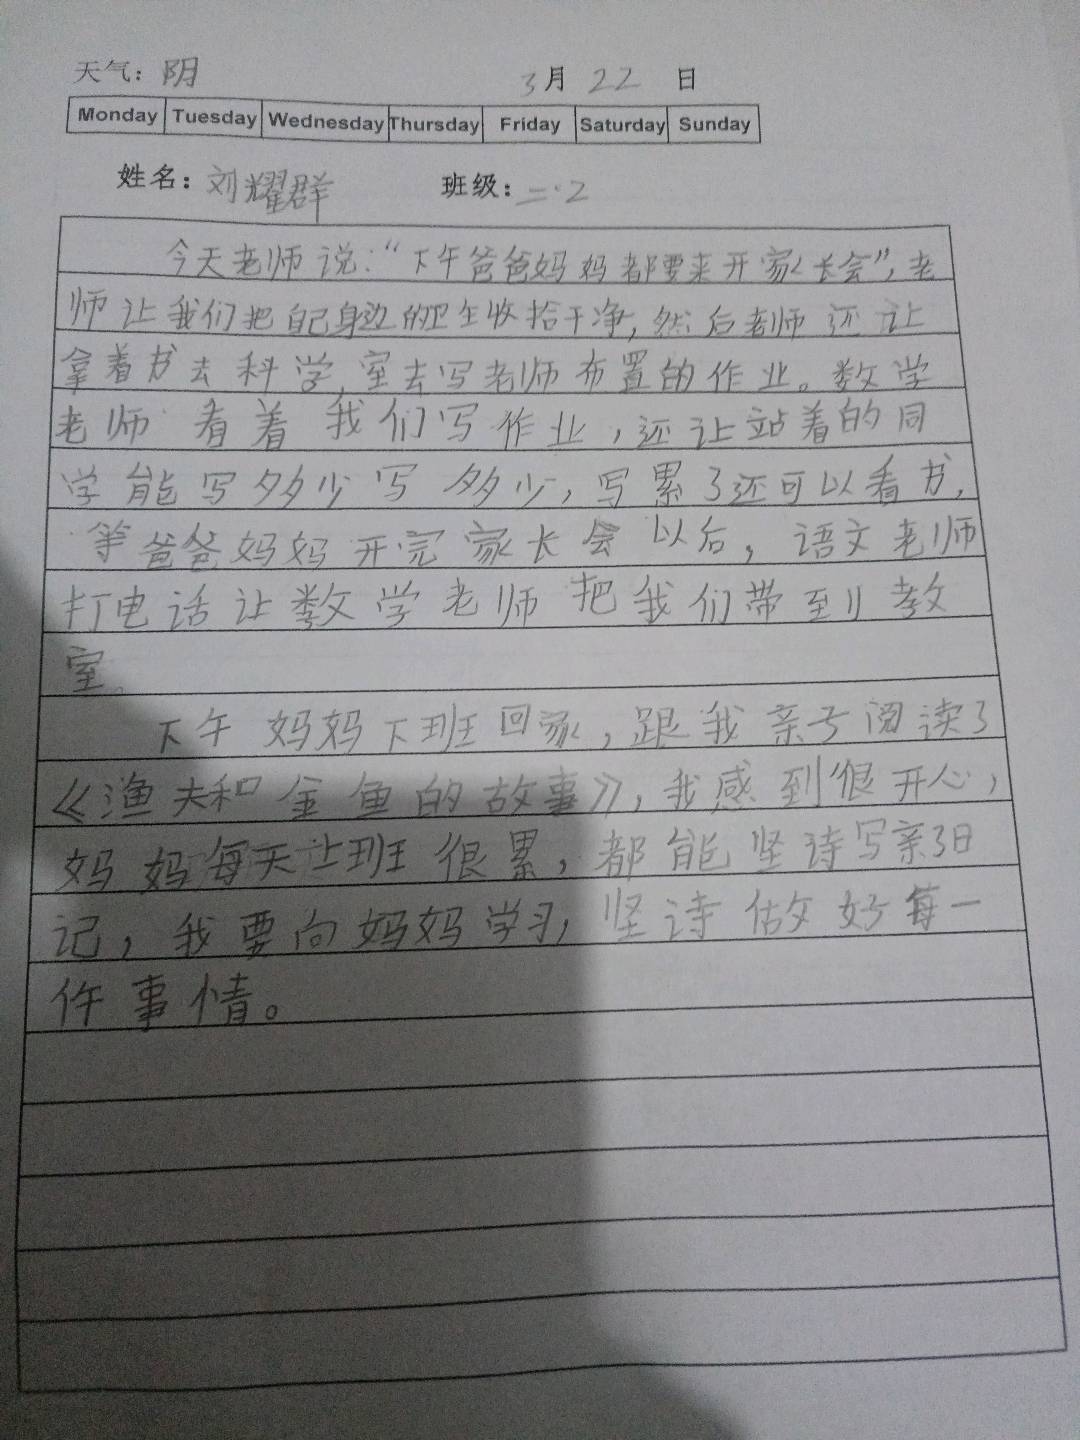 天气：阴 3月 22 日
Monday Tuesday Wednesday Thursday Friday Saturday Sunday
姓名：刘耀群 班级：二·2
今天老师说：“下午爸爸妈妈都要来开家长会”，老
师让我们把自己身边的卫生收拾干净，然后老师还让
拿着书去科学，室去写老师布置的作业。数学
老师看着我们写作业，还让站着的同
学能写多少写多少，写累了还可以看书，
等爸爸妈妈开完家长会以后，语文老师
打电话让数学老师把我们带到教
室。
下午妈妈下班回家，跟我亲子阅读了
《渔夫和金鱼的故事》，我感到很开心，
妈妈每天上班很累，都能坚诗写亲子日
记，我要向妈妈学习，坚诗做好每一
件事情。